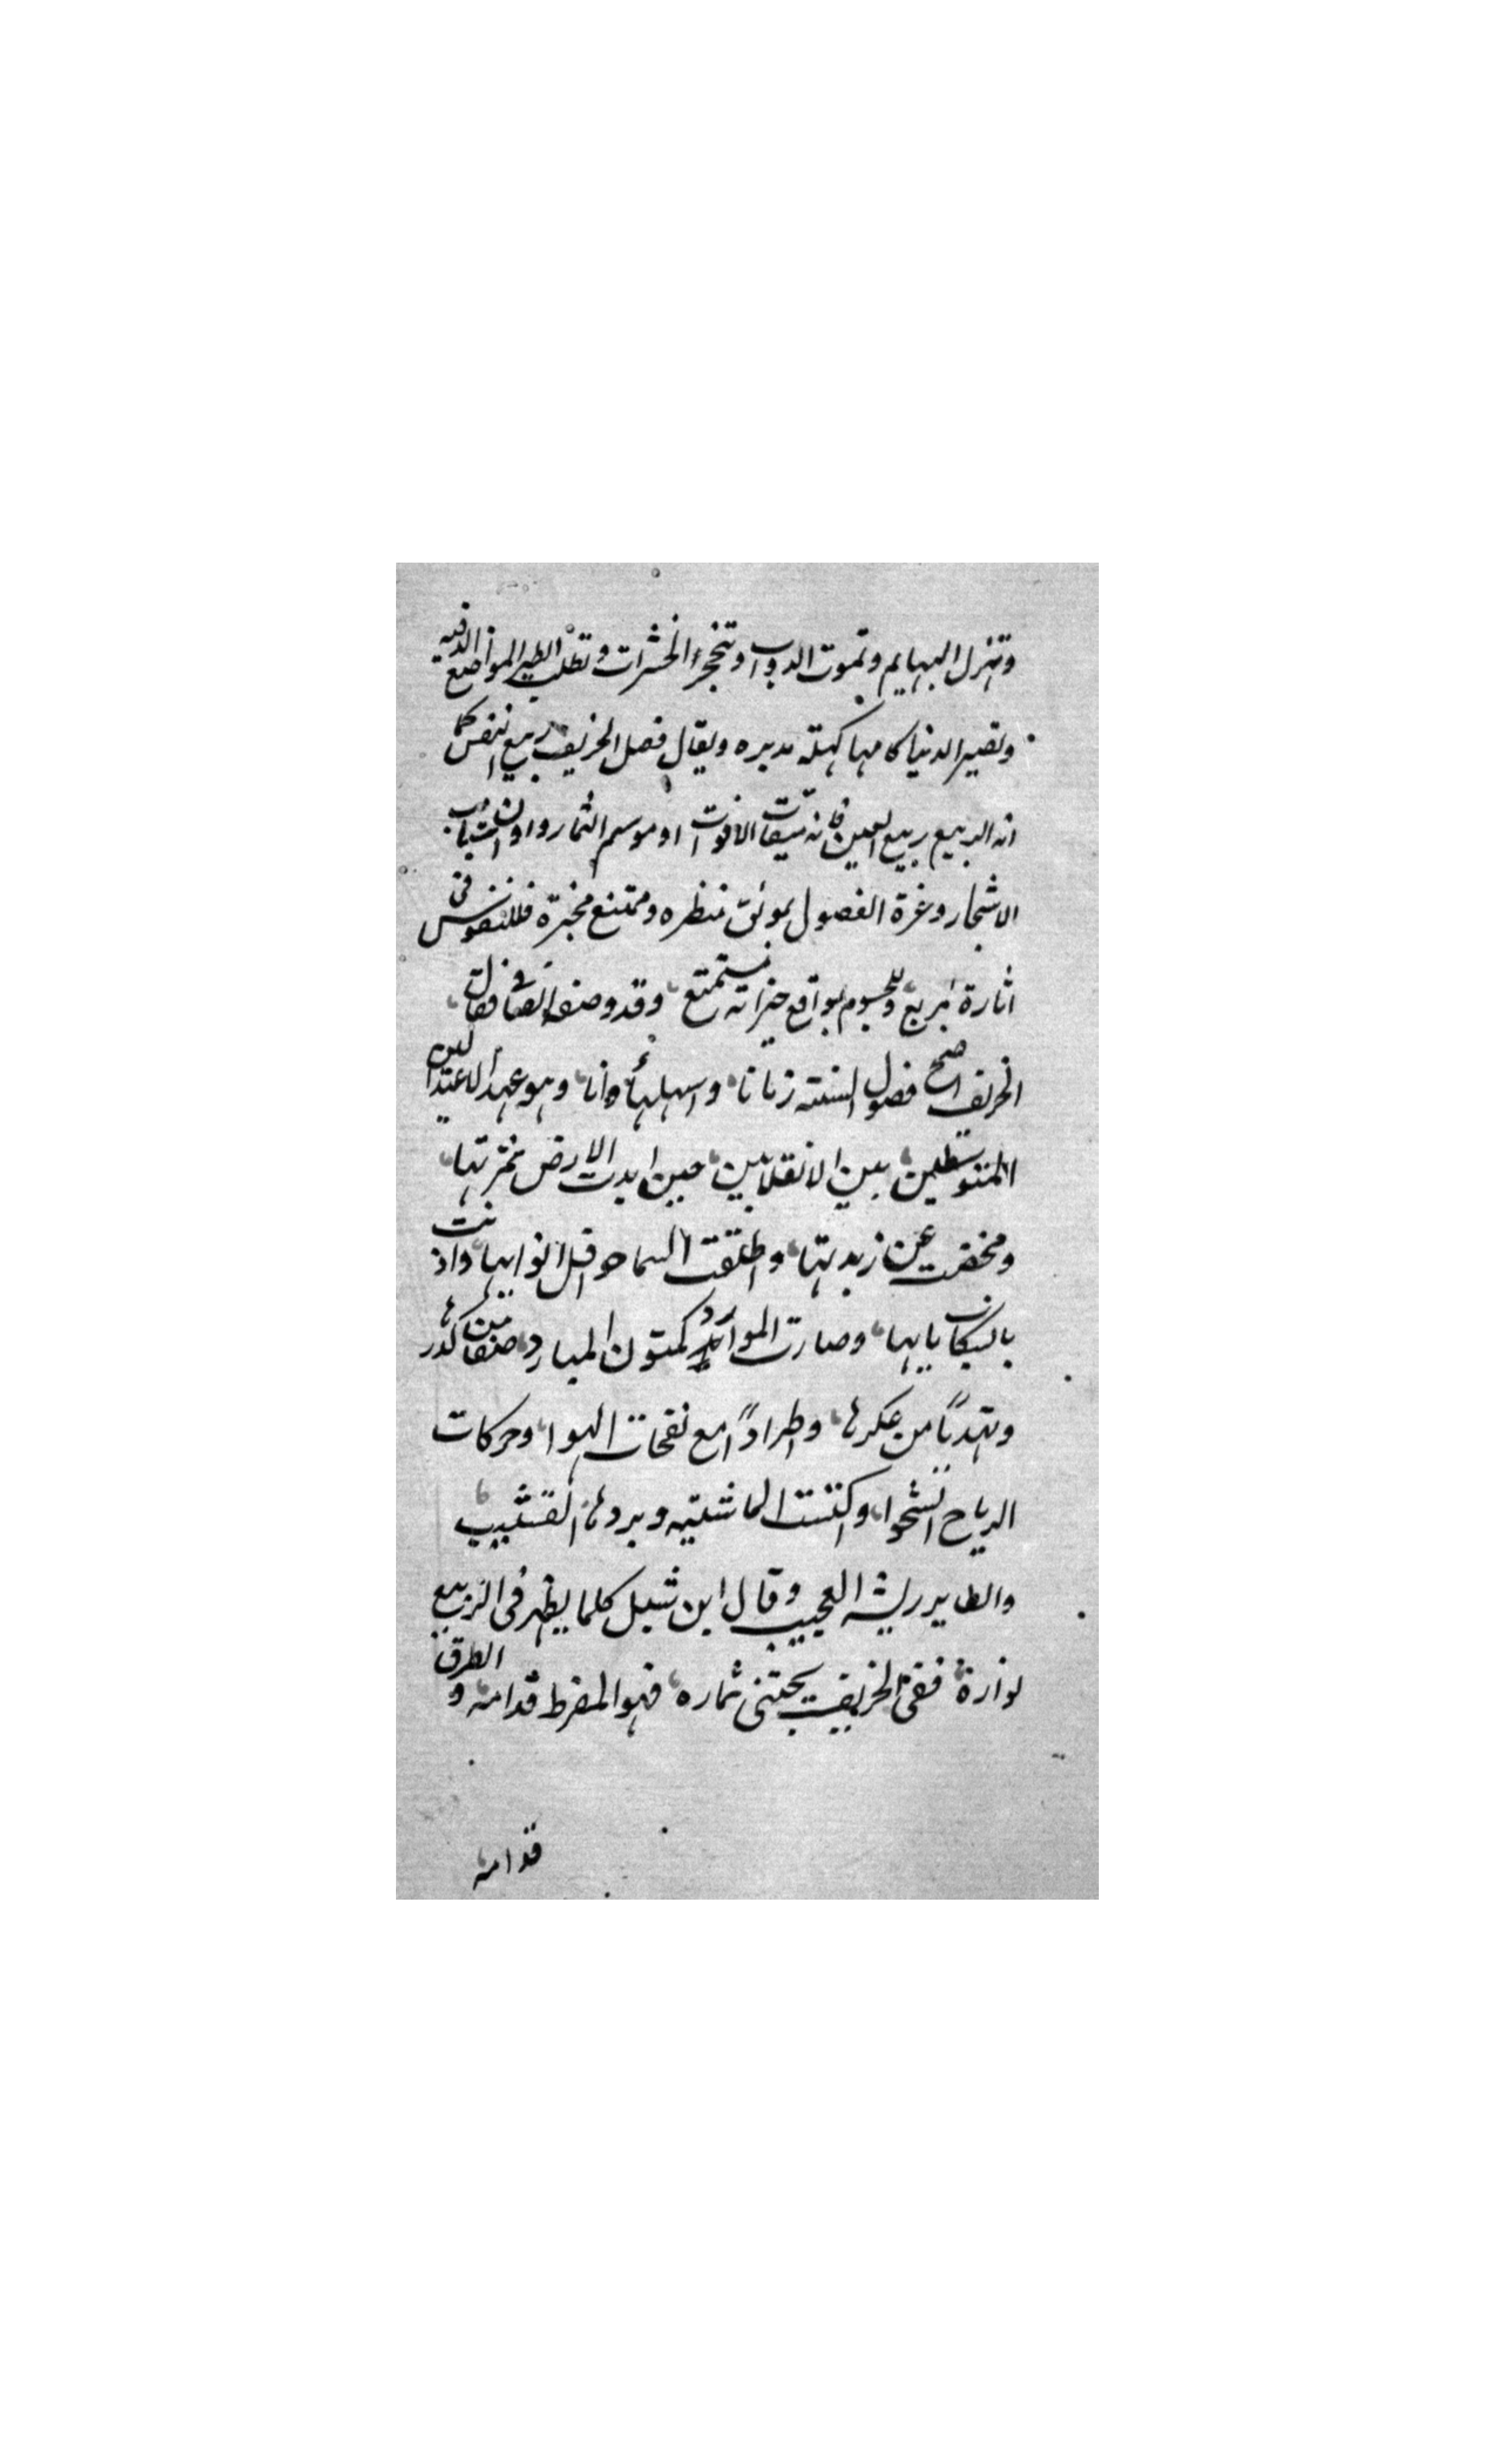 وتهزل البهايم وتموت الدواب وتنجحر الحشرات وتطلب الطير المواضع الدفيه
وتصير الدنيا كانها كهلة مدبره ويقال فصل الخريف ربيع النفس كما
انه الربيع ربيع العين فانه ميقات الاقوات او موسم الثمار واوان شباب
الاشجار وغرة الفصول بمونق منظره وممتنع مخبرة فللنفوس في
اثارة مربع وللجسوم بواقع خيراته مستمتع وقد وصفه الصابي فقال
الخريف اصح فصول السنته زمانا واسهلها اوانا وهو عهد الاعتدالين
المتوسطين بين الانقلابين حين ابدت الارض عن ثمرتها
ومخضت عن زبدتها واطلقت السما حوافل انوايها واذنت
بانسكاب مايها وصارت الموارد كمتون المبارد صفا من كدرها
وتهدبًا من عكرها واطرادًا مع نفحات الهوا وحركات
الرياح الشحوا واكتست الماشتيه وبردها القشيب
والطاير ريشه العجيب وقال ابن شبل كلما يظهر في الربيع
نوارة ففي الخريف يجتنى ثماره فهو المفرط قدامه و الطرق
قدامه